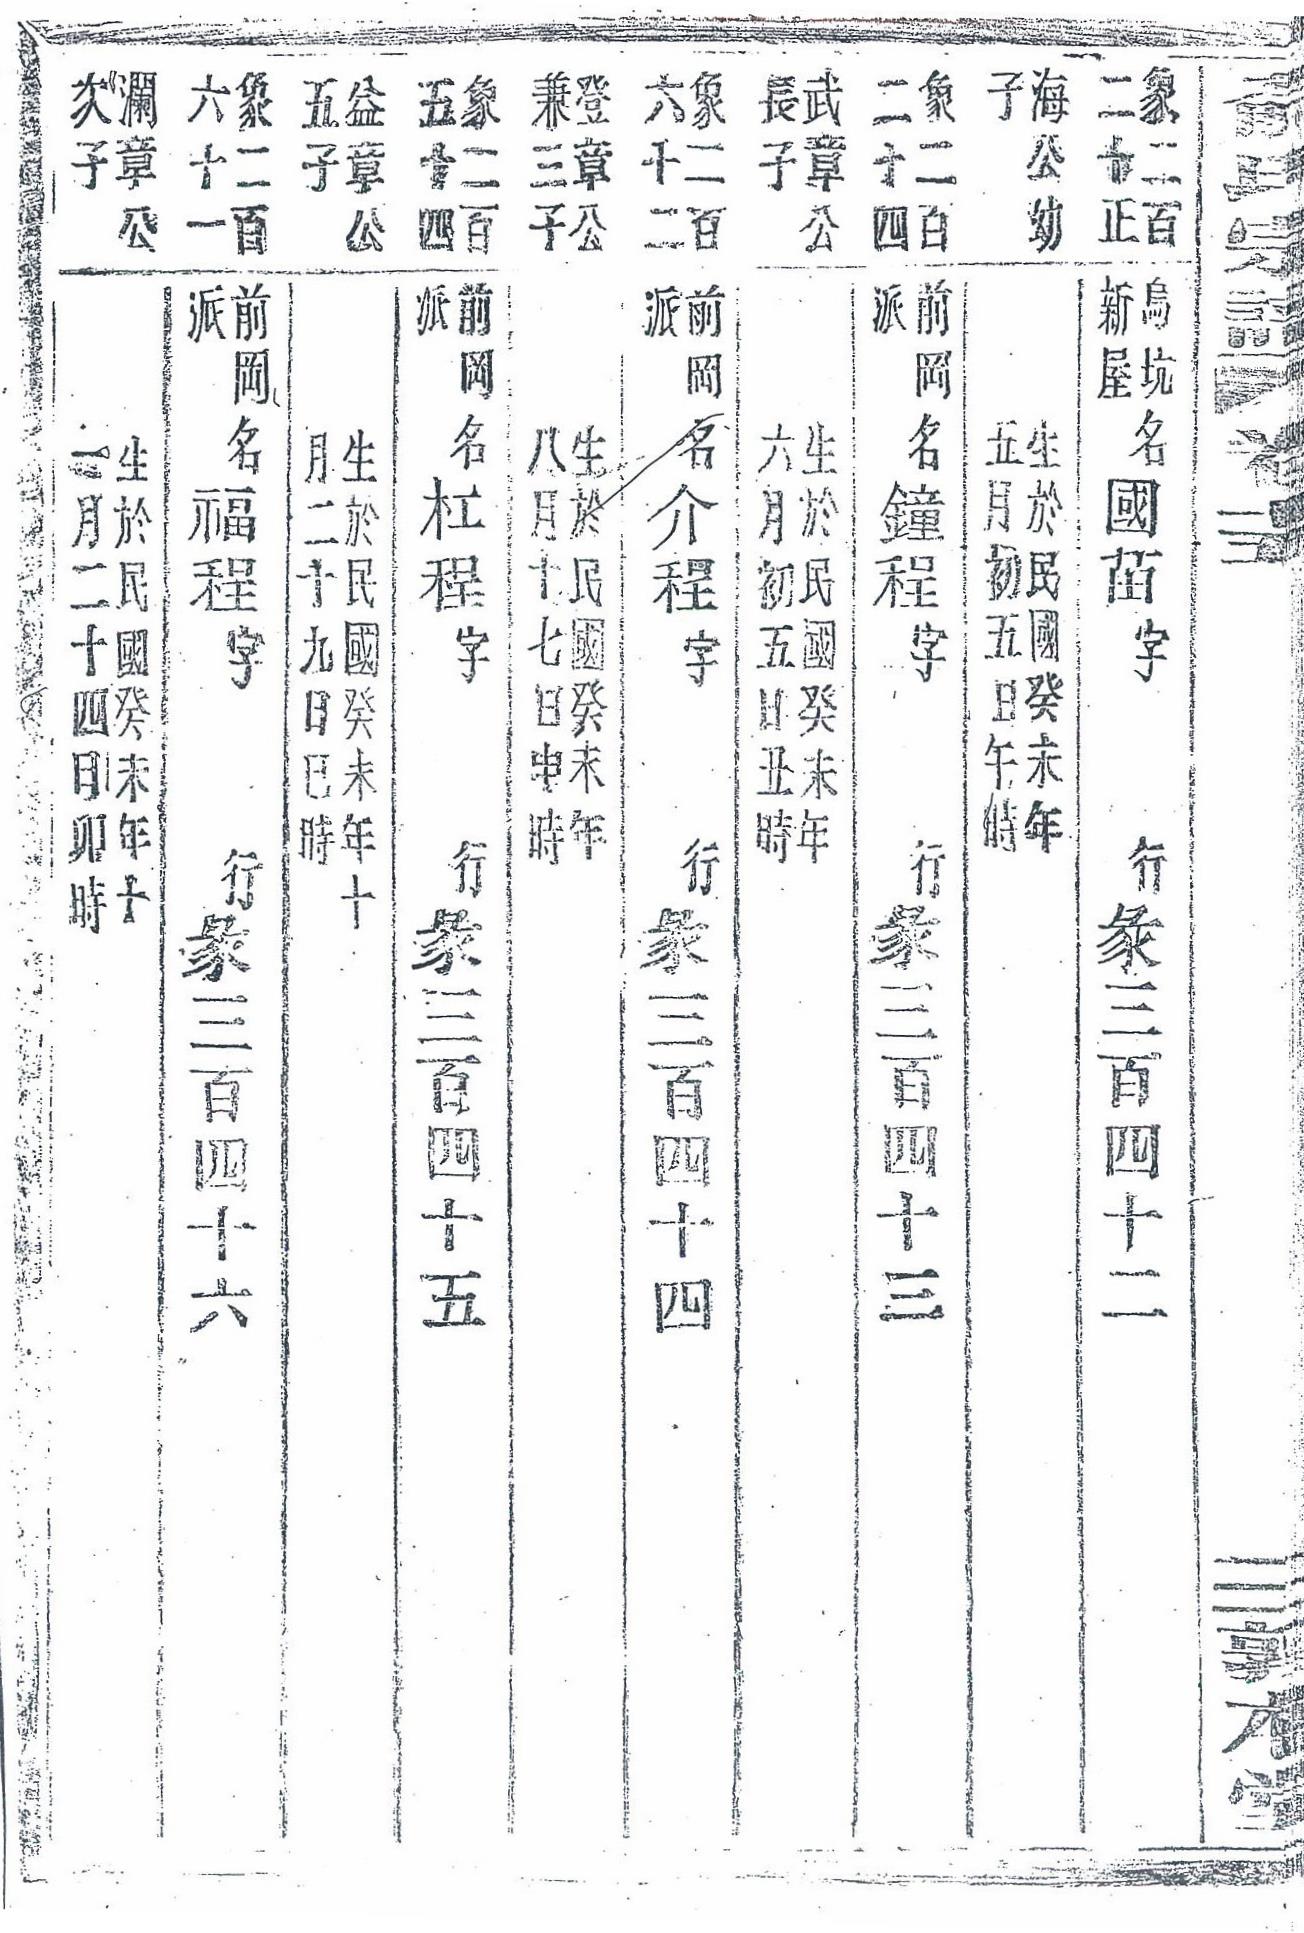 象二百
二十正
海公幼
子
烏坑
新屋
名國苗字
行彖三百四十二
生於民國癸未年
五月初五日午時
象二百
二十四
武章公
長子
前岡
派
名鐘程字
行彖三百四十三
生於民國癸未年
六月初五日丑時
象二百
六十二
登章公
兼三子
前岡
派
名介程字
行彖三百四十四
生於民國癸未年
八月十七日申時
象二百
五十四
益章公
五子
前岡
派
名杠程字
行彖三百四十五
生於民國癸未年十
月二十九日巳時
象二百
六十一
瀾章公
次子
前岡
派
名福程字
行彖三百四十六
生於民國癸未年十
一月二十四日卯時